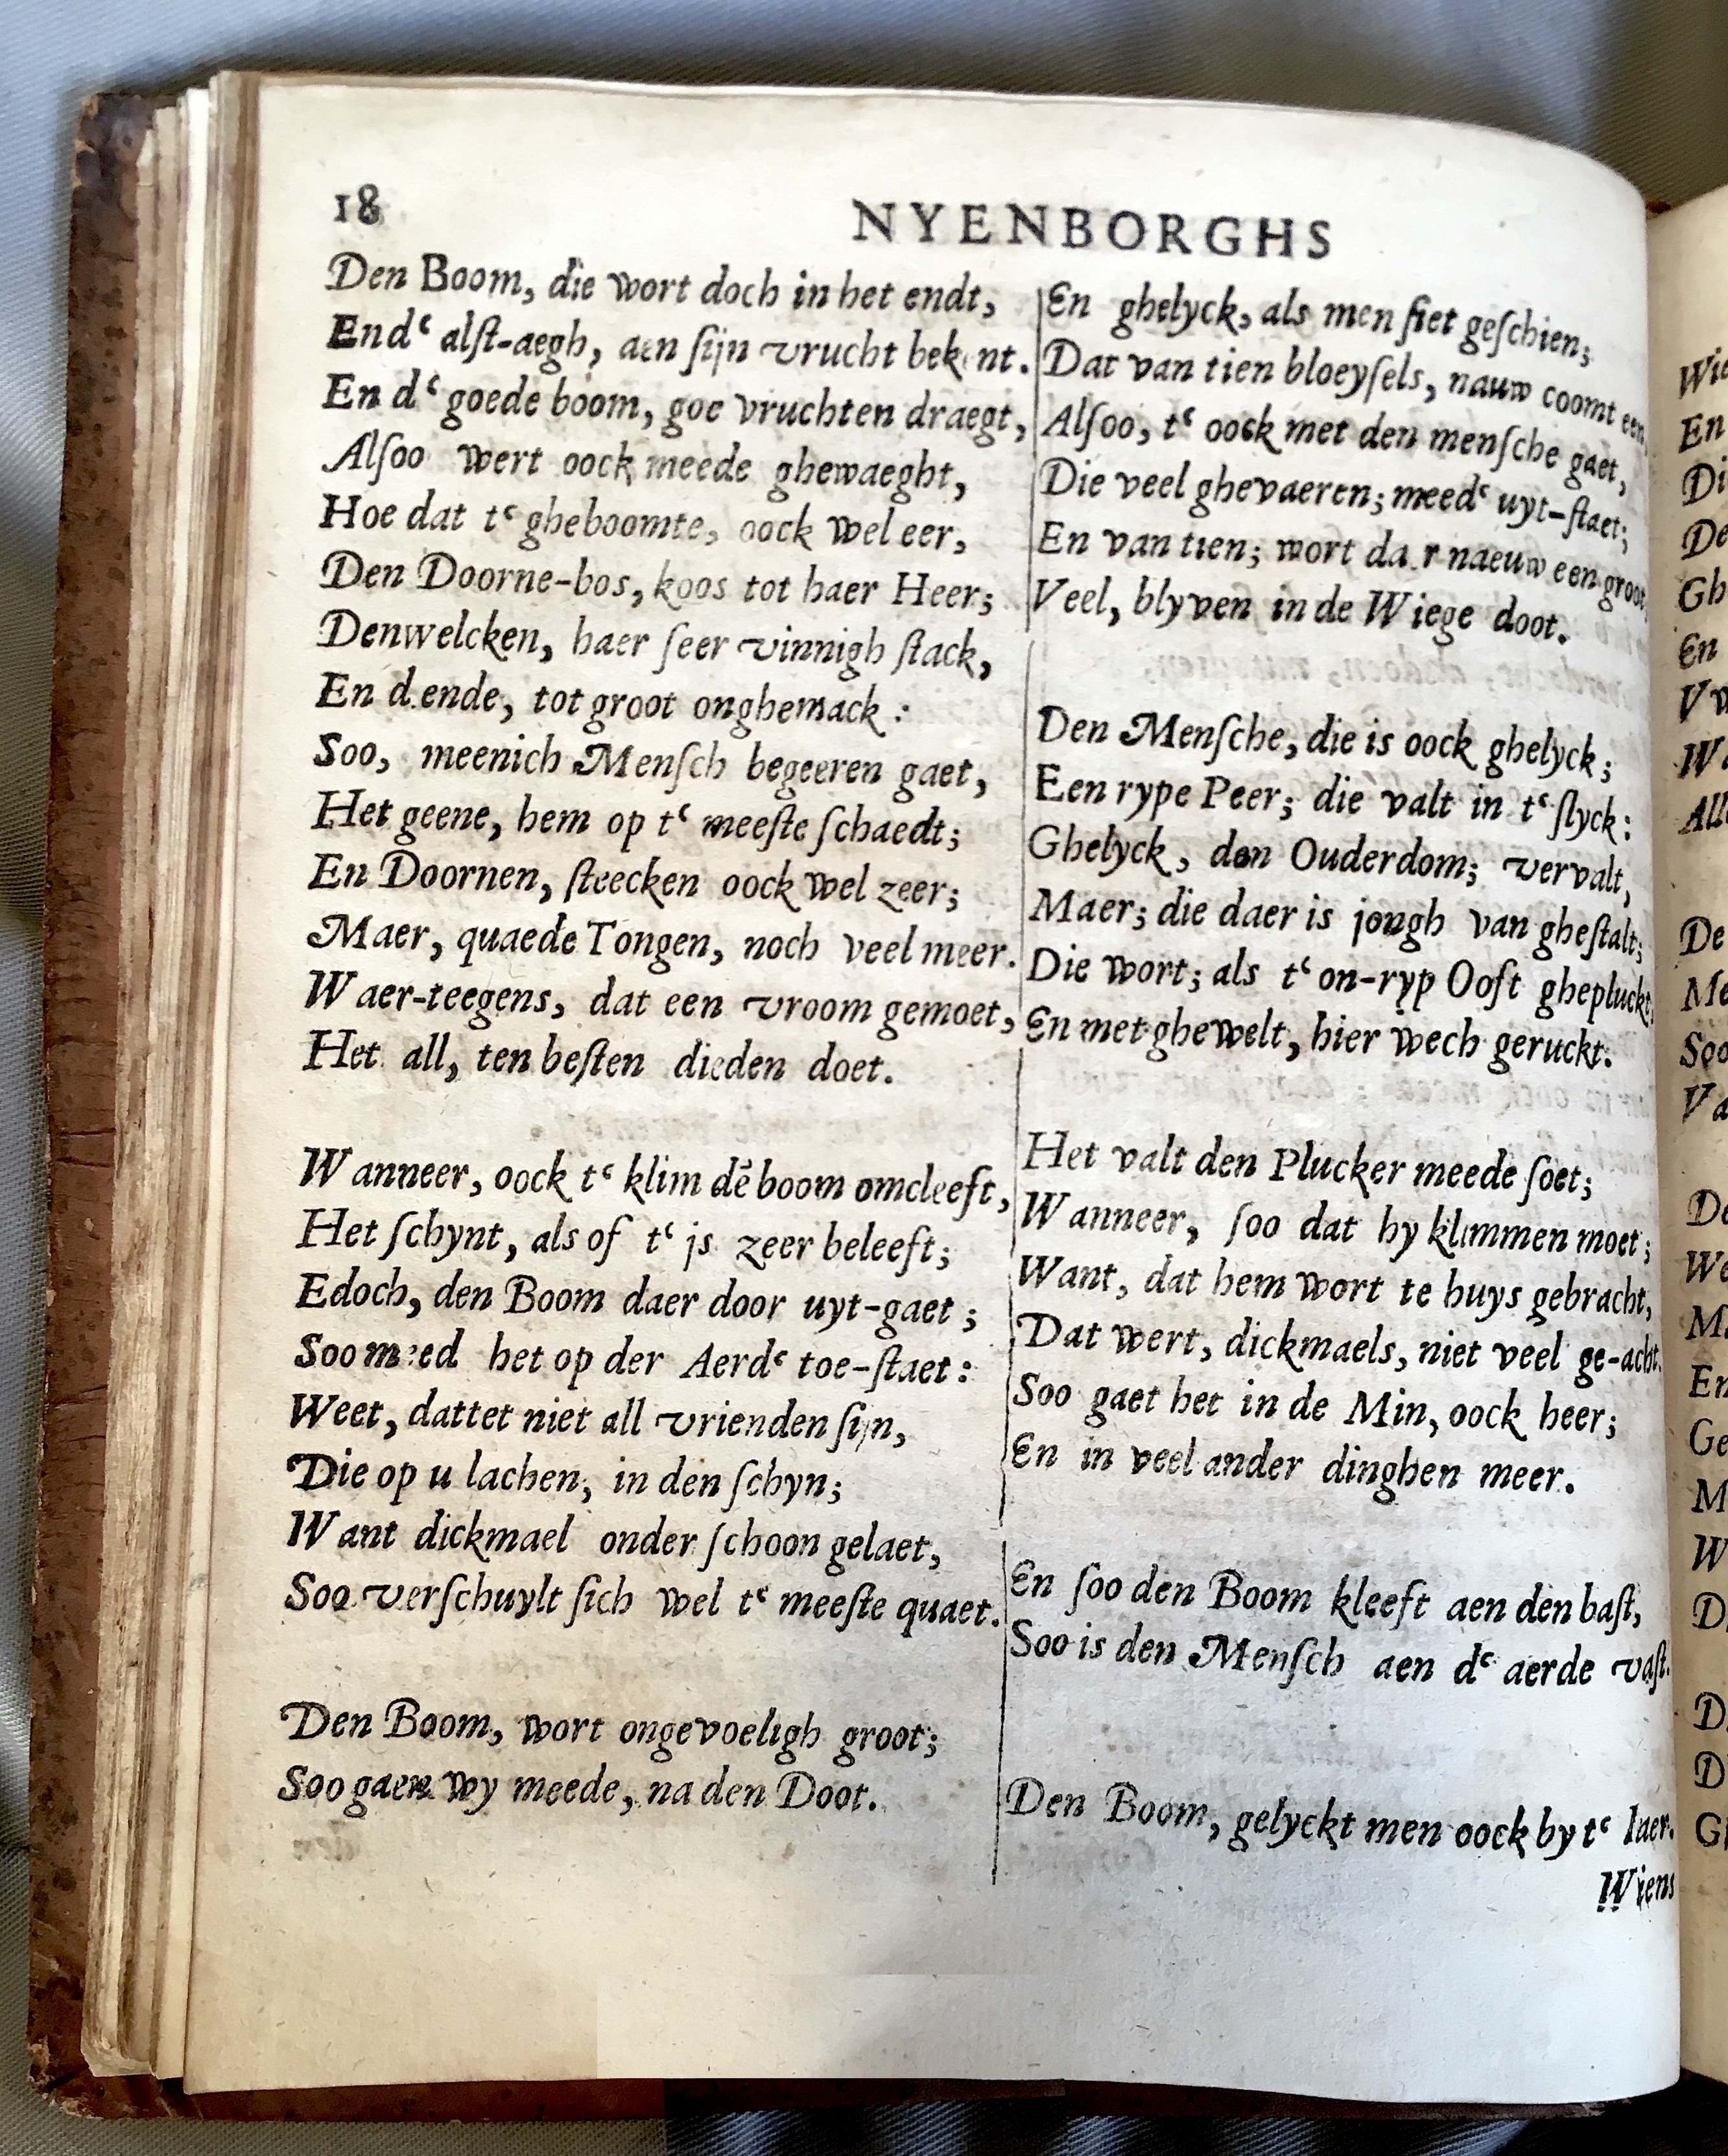 18
NYENBORGHS
Den Boom, die wort doch in het endt,
End‘ alſt-aegh, aen ſijn vrucht bekent.
En d‘ goede boom, goe vruchten draegt,
Alſoo wert oock meede ghewaeght,
Hoe dat t‘ gheboomte, oock wel eer,
Den Doorne-bos, koos tot haer Heer;
Denwelcken, haer ſeer vinnigh ſtack,
En d.ende, tot groot onghemack :
Soo, meenich Menſch begeeren gaet,
Het geene, hem op t‘ meeſte ſchaedt;
En Doornen, ſteecken oock wel zeer;
Maer, quaede Tongen, noch veel meer.
Waer-teegens, dat een vroom gemoet,
Het all, ten beſten dieden doet.
Wanneer, oock t‘ klim dē boom omcleeft,
Het ſchynt, als of t‘ js zeer beleeft;
Edoch, den Boom daer door uyt-gaet ;
Soo meed het op der Aerd‘ toe-ſtaet :
Weet, dattet niet all vrienden ſijn,
Die op u lachen, in den ſchyn;
Want dickmael onder ſchoon gelaet,
Soo verſchuylt ſich wel t‘ meeſte quaet.
Den Boom, wort ongevoeligh groot;
Soo gaen wy meede, na den Doot.
En ghelyck, als men ſiet geſchien;
Dat van tien bloeyſels, nauw coomt een
Alſoo, t‘ oock met den menſche gaet,
Die veel ghevaeren; meed‘ uyt-ſtaet;
En van tien; wort da.r naeuw een groot
Veel, blyven in de Wiege doot.
Den Menſche, die is oock ghelyck;
Een rype Peer; die valt in t‘ ſlyck :
Ghelyck, den Ouderdom; vervalt,
Maer; die daer is jongh van gheſtalt;
Die wort; als t‘ on-ryp Ooft ghepluckt,
En met ghewelt, hier wech geruckt.
Het valt den Plucker meede ſoet;
Wanneer, ſoo dat hy klimmen moet;
Want, dat hem wort te huys gebracht,
Dat wert, dickmaels, niet veel ge-acht.
Soo gaet het in de Min, oock heer;
En in veel ander dinghen meer.
En ſoo den Boom kleeft aen den baſt,
Soo is den Menſch aen d‘ aerde vaſt.
Den Boom, gelyckt men oock by t‘ Iaer.
Wiens